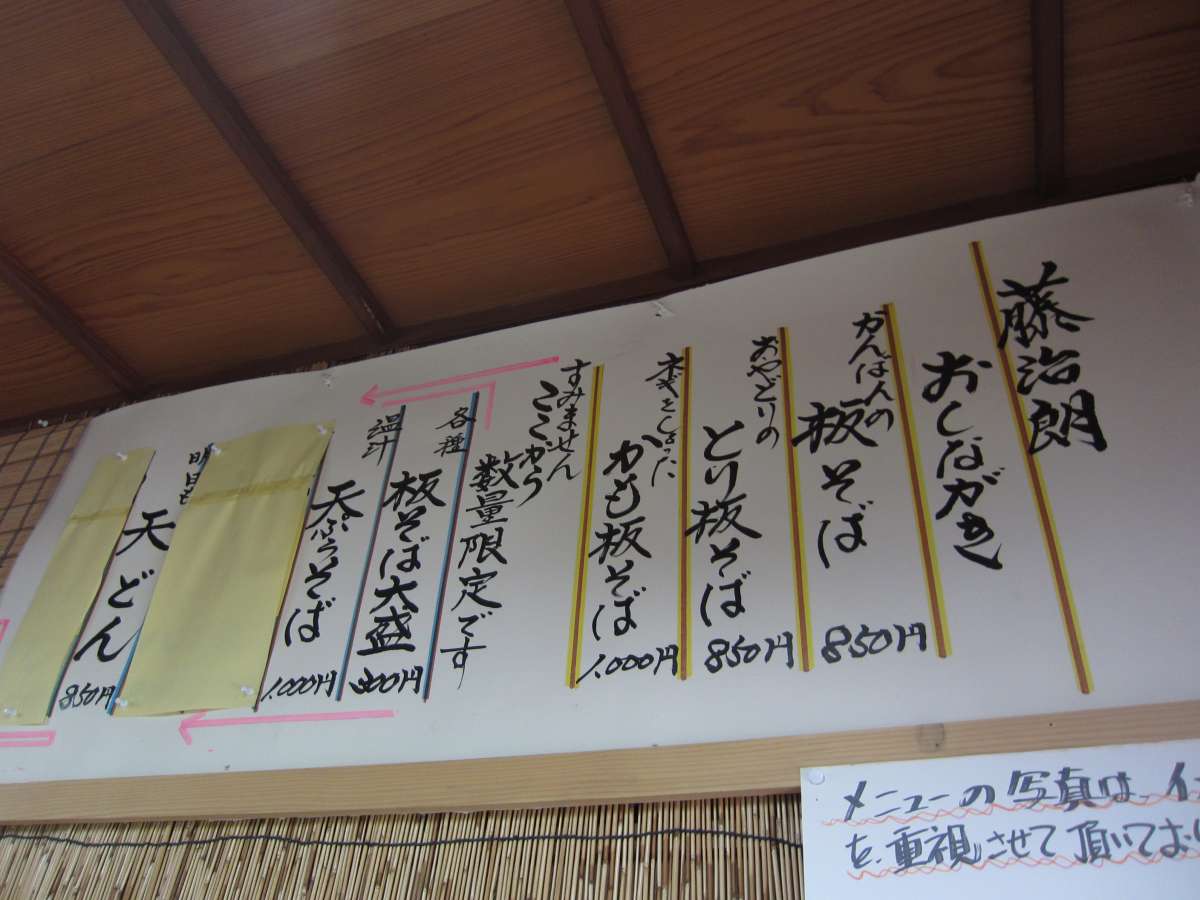 藤治朗
おしながき
かんばんの
板そば
850円
おやどりの
とり板そば
850円
ネギをしょった
かも板そば
1.000円
すみません
ここから
数量限定です
各種
板そば大盛
300円
温汁
天ぷらそば
1.000円
明日
天どん
850円
メニューの写真は、イ
を、重視させて頂いてお